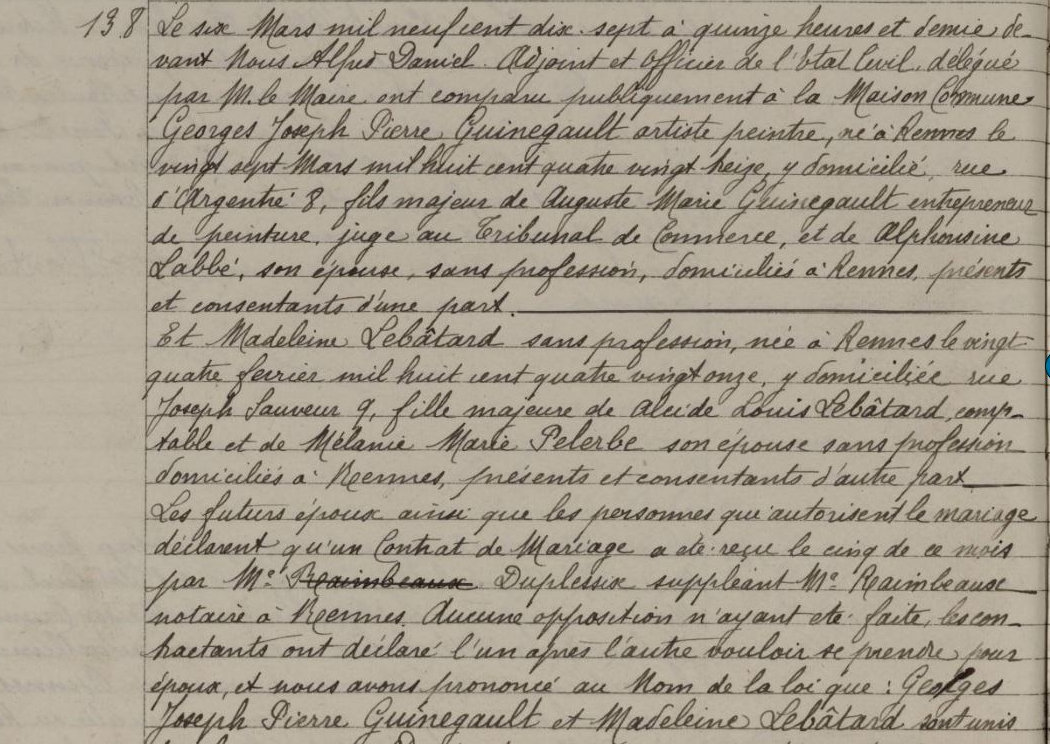 138 Le six Mars mil neuf cent dix-sept à quinze heures et demie, de-
vant Nous Alfred Daniel. Adjoint et Officier de l'Etat Civil, délégué
par M. le Maire ont comparu publiquement à la Maison Commune
Georges Joseph Pierre Guinegault artiste peintre, né à Rennes le
vingt sept Mars mil huit cent quatre vingt treize, y domicilié, rue
d'Argentré 8, fils majeur de Auguste Marie Guinegault entrepreneur
de peinture, juge au Tribunal de Commerce, et de Alphonsine
Labbé, son épouse, sans profession, domiciliés à Rennes, présents
et consentants d'une part.
Et Madeleine Lebâtard sans profession, née à Rennes le vingt-
quatre février mil huit cent quatre vingt onze, y domiciliée rue
Joseph Sauveur 9, fille majeure de Alcide Louis Lebâtard, comp-
table et de Mélanie Marie Pelerbe son épouse sans profession
domiciliés à Rennes, présents et consentants d'autre part
Les futurs époux ainsi que les personnes qui autorisent le mariage
déclarent qu'un Contrat de Mariage a été reçu le cinq de ce mois
par Me Raimbeaux Duplessix suppléant Me Raimbeaux
notaire à Rennes. Aucune opposition n'ayant été faite, les con-
tractants ont déclaré l'un après l'autre vouloir se prendre pour
époux, et nous avons prononcé au Nom de la loi que : Georges
Joseph Pierre Guinegault et Madeleine Lebâtard sont unis